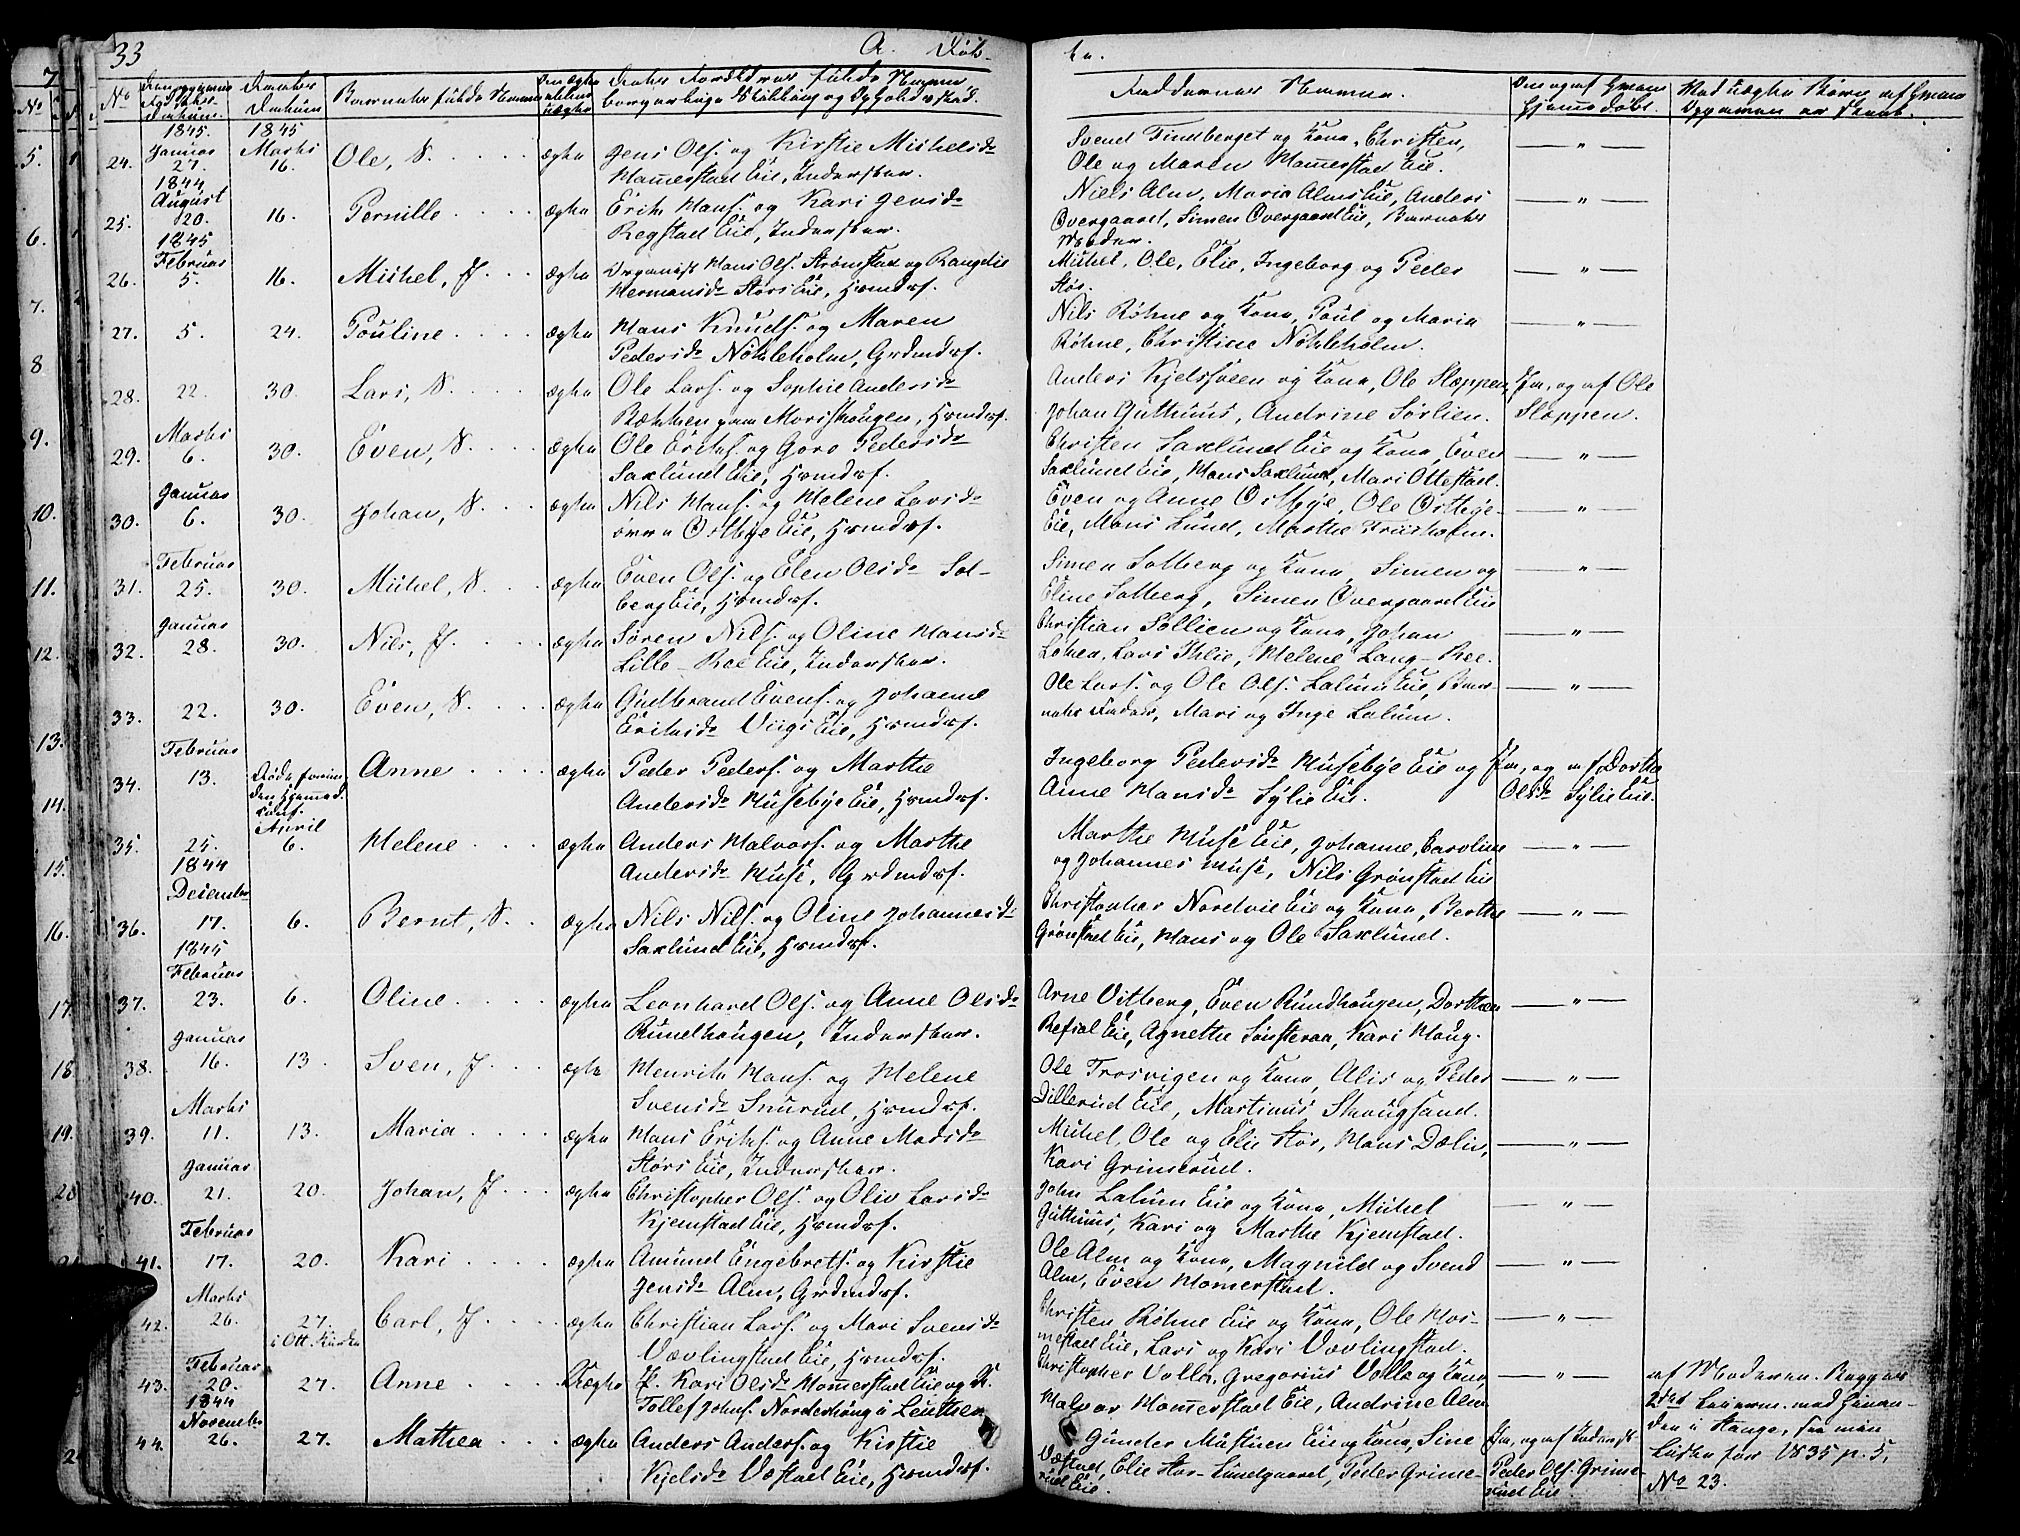 33 A. Døb-
te.
No Børnenes fulde Navne
Faddernes Navne.
1845. 1845
24. Januar 27. Marts 16. Ole, S. ægte Jens Ols. og Kirstie Mikelsdr
Hamerstad Eie, Inderster.
Svend Tindberget og Kone, Christen,
Ole og Maren Hamerstad Eie. — " —
1844
25. August 20. 16. Pernille ægte Erik Hans. og Kari Jensdr
Regstad Eie, Inderster.
Niels Alm, Maria Alms Eie, Anders
Overgaard, Simen Overgaard Eie, Barnets
Moder. — " —
1845
26. Februar 5. 16. Mikel, J. ægte Organist Hans Ols. Strømstad og Rangdie
Hermansdr Størs Eie, Hsmdsf.
Mikel, Ole, Elie, Ingeborg og Peder
Stør. — " —
27. 5. 24. Pouline ægte Hans Knuds. og Maren
Pedersdr Nökleholm, Grdmdsf.
Nils Röhne og Kone, Poul og Maria
Röhne, Christine Nökleholm. — " —
28. 22. 30. Lars, S. ægte Ole Lars. og Sophie Andersdr
Bækken paa Morsskougen, Hsmdsf.
Anders Kjelsveen og Kone, Ole Sloppen,
Johan Guthuus, Andrine Sørlien. Ja, og af Ole
Sloppen.
29. Marts 6. 30. Even, S. ægte Ole Eriks. og Goro Pedersdr
Saxlund Eie, Hsmdsf.
Christen Saxlund Eie og Kone, Even
Saxlund Eie, Hans Saxlund, Mari Ottestad. — " —
30. Januar 6. 30. Johan, S. ægte Nils Hans. og Helene Larsdr
övre Ostbye Eie, Hsmdsf.
Even og Anne Ostbye, Ole Ostbye-
Eie, Hans Lund, Marthe Friisholm. — " —
31. Februar 25. 30. Mikel, S. ægte Even Ols. og Elen Olsdr Sol-
berg Eie, Hsmdsf.
Simen Solberg og Kone, Simen og
Eline Solberg, Simen Overgaard Eie — " —
32. Januar 28. 30. Nils, J. ægte Søren Nils. og Oline Hansdr
Lille-Ree Eie, Inderster.
Christian Sollien og Kone, Johan
Löken, Lars Ihlie, Helene Lang-Ree. — " —
33. 22. 30. Even, S. ægte Gudbrand Evens. og Johanne
Eriksdr Viigs Eie, Hsmdsf.
Ole Lars. og Ole Ols. Lalum Eie, Bar-
nets Fader, Mari og Inge Lalum. — " —
34. Februar 13. Anne ægte Peder Peders. og Marthe
Andersdr Husebye Eie, Hsmdsf.
Ingeborg Pedersdr Husebye Eie og
Anne Hansdr Sylie Eie. Ja, og af Dorthe
Olsdr Sylie Eie.
35. 25. April 6. Helene ægte Anders Halvors. og Marthe
Andersdr Huse, Grdmdsf.
Marthe Huse Eie, Johanne, Caroline
og Johannes Huse, Nils Grönstad Eie — " —
1844
36. December 17. 6. Bernt, S. ægte Nils Nils. og Oline Johannesdr
Saxlund Eie, Hsmdsf.
Christopher Nordvie Eie og Kone, Berthe
Grönstad Eie, Hans og Ole Saxlund. — " —
1845
37. Februar 23. 6. Oline ægte Leonhard Ols. og Anne Olsdr
Rundhougen, Inderster.
Arne Vitberg, Even Rundhougen, Dorthea
Refsal Eie, Agnethe Sønsteraa, Kari Haug. — " —
38. Januar 16. 13. Sven, J. ægte Henrik Hans. og Helene
Svensdr Snurud, Hsmdsf.
Ole Trosvigen og Kone, Alis og Peder
Dillerud Eie, Martinus Skougsand. — " —
39. Marts 11. 13. Maria ægte Hans Eriks. og Anne Madsdr
Störs Eie, Inderster.
Mikel, Ole og Elie Stör, Hans Dælin,
Kari Grimerud. — " —
40. Januar 21. 20. Johan, J. ægte Christopher Ols. og Oliv Larsdr
Kjemstad Eie, Hsmdsf.
John Lalum Eie og Kone, Mikel
Guthuus, Kari og Marthe Kjemstad. — " —
41. Februar 17. 20. Kari ægte Amund Engebrets. og Kirstie
Jensdr Alm, Grdmdsf.
Ole Alm og Kone, Magnild og Svend
Alm, Even Homerstad. — " —
42. Marts 26. 27. i Ott. Kirke Carl, J. ægte Christian Lars. og Mari Svensdr
Vævlingstad Eie, Hsmdsf.
Christen Röhne Eie og Kone, Ole Hor-
mestad Eie, Lars og Kari Vævlingstad. — " —
43. Februar 20. 27. Anne Uægte P. Kari Olsdr Homerstad Eie og U.
Tollef Johs. Norderhoug i Leuthen
Christopher Volla, Gregorius Volla og Kone,
Halvor Homerstad Eie, Andrine Alm. — " — af Moderen. Begges
2det Leierm. med hinan-
den i Stange, see min
Liste for 1835 p. 5,
No 23.
1844
44. November 26. 27. Mathea ægte Anders Anders. og Kirstie
Kjelsdr Væstad Eie, Hsmdsf.
Gunder Mustuen Eie og Kone, Sine
Væstad, Elie Stor-Lundgaard, Peder Grime-
rud Eie. Ja, og af
Peder Ols. Grime-
rud Eie